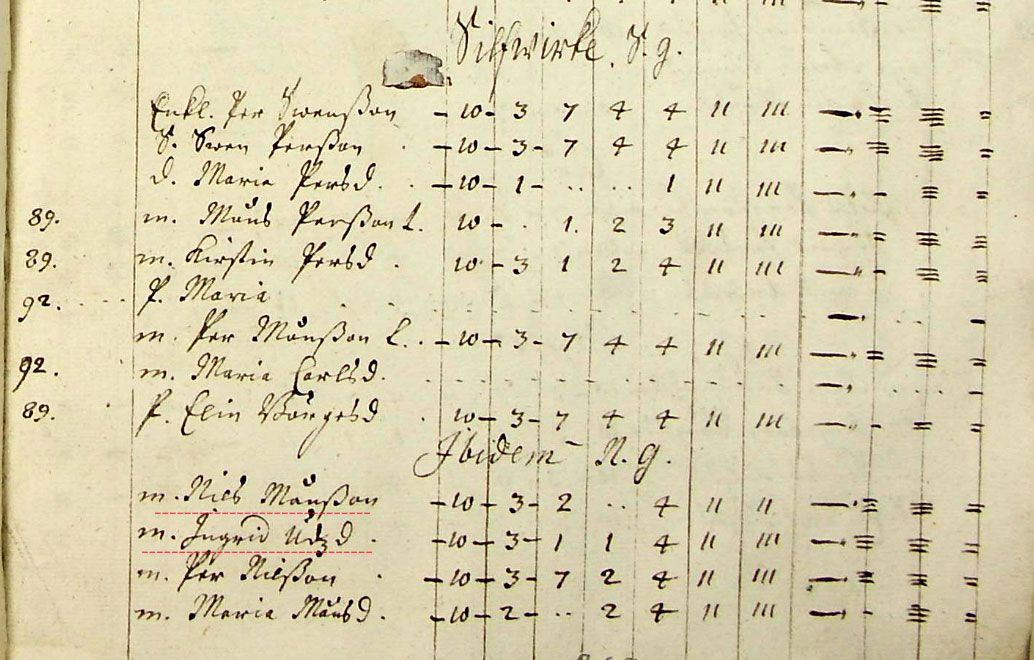 Silfwirke. S. g.
Enkl. Per Swenßon – 10 – 3 7 4 4 11 111
S. Swen Perßon – 10 – 3 – 7 4 4 11 111
d. Maria Persd. – 10 – 1 – .. .. 1 11 111
89. m. Måns Perßon L. 10 – . 1. 2 3 11 111
89. m. Kirstin Persd. 10 – 3 1 2 4 11 111
92. P. Maria
m. Per Månßon L. – 10 – 3 – 7 4 4 11 111
92. m. Maria Carlsd.
89. P. Elin Börgesd. 10 – 3 – 7 4 4 11 111
Ibidem N. g.
m. Nils Månßon – 10 – 3 – 2 .. 4 11 11
m. Ingrid – 10 – 3 – 1 1 4 11 111
m. Per Nilßon – 10 – 3 – 7 2 4 11 111
m. Maria Månsd. – 10 – 2 – .. 2 4 11 111